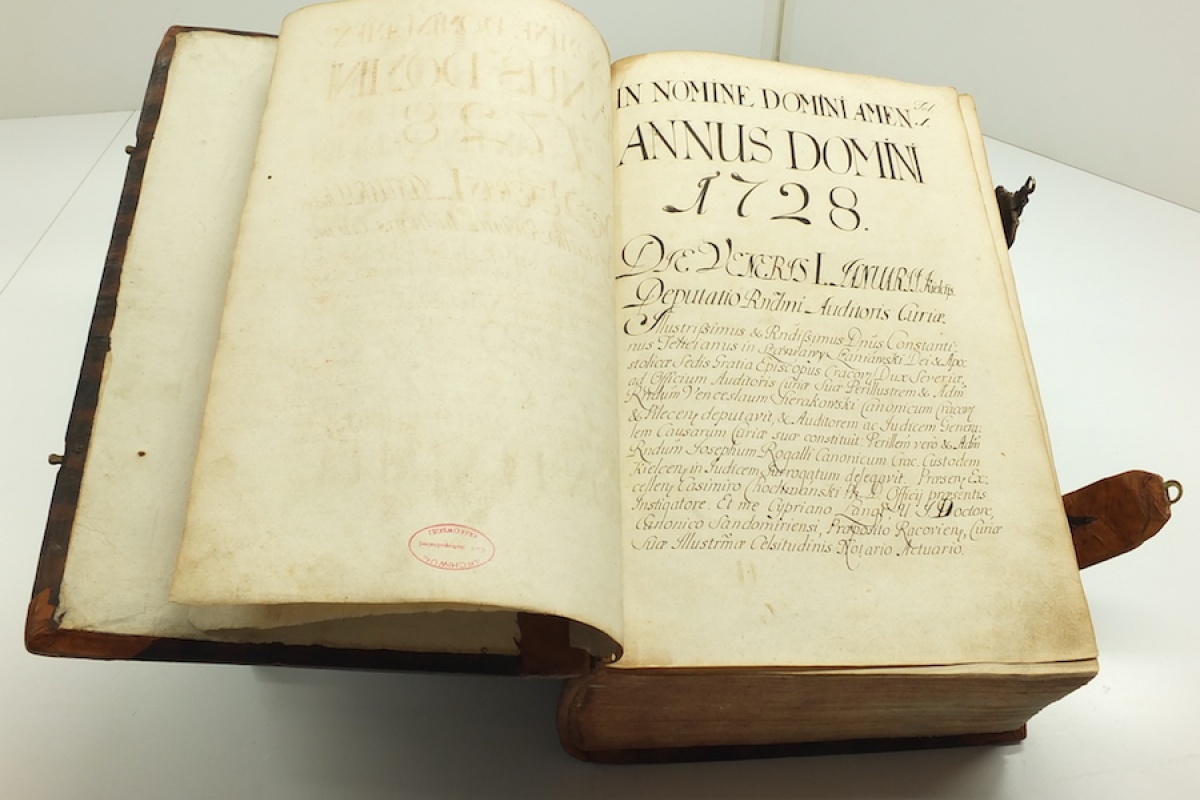 IN NOMINE DOMINI AMEN.
ANNUS DOMINI
1728.
DIE VENERIS I. JANUARII Kielciis.
Deputatio Rndmi Auditoris Curiæ.
Illustrissimus & Rndissimus Dnus Constanti-
nus Felicianus in Szaniawy Szaniawski Dei & Apo:
stolicæ Sedis Gratia Episcopus Cracov: Dux Severiæ,
ad Officium Auditoris Curiæ Suæ Perillustrem & Adm
Rndum Venceslaum Sierakowski Canonicum Cracov:
& Pilecen: deputavit, & Auditorem ac Judicem Genera-
lem Causarum Curiæ suæ constituit. Perillem vero & Adm
Rndum Josephum Rogalli Canonicum Crac. Custodem
Kielcen: in Judicem Surrogatum delegavit. Præsen: Ex:
cellen: Casimiro Chochmanski Officij præsentis
Instigatore. Et me Cypriano Doctore,
Canonico Sandomiriensi, Præposito Racovien: Curiæ
Suæ Illustrmæ Celsitudinis Notario Actuario.